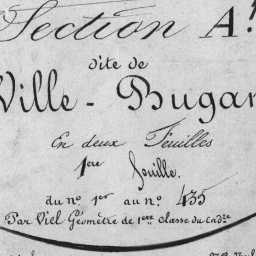 Section A.
dite de
Ville - Bugan
En deux Feuilles
1ere feuille.
du no. 1er au no. 435
Par Viel Géomètre de 1ere Classe du Cad.re